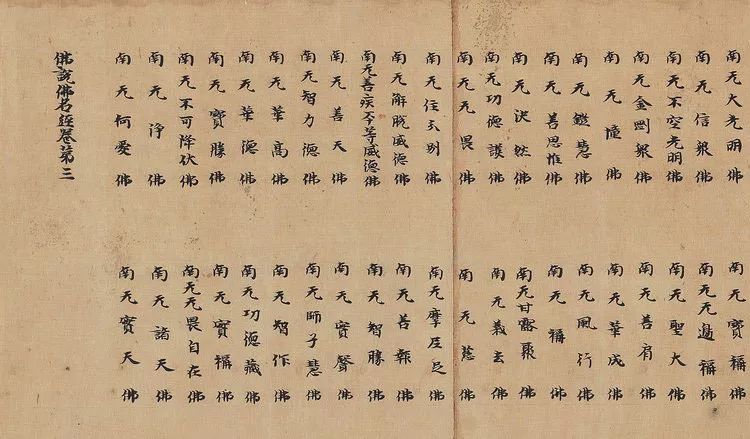 南无大光明佛 南无寶稱佛
南无信衆佛 南无无邊稱佛
南无不空光明佛 南无聖大佛
南无金剛衆佛 南无善肩佛
南无憧佛 南无華成佛
南无鎧慧佛 南无風行佛
南无善思惟佛 南无稱佛
南无決然佛 南无甘露聚佛
南无功德護佛 南无義去佛
南无无畏佛 南无慈佛
南无住分别佛 南无摩尼足佛
南无解脱威德佛 南无善報佛
南无善疾平等威德佛 南无智勝佛
南无善天佛 南无寶聲佛
南无智力德佛 南无師子慧佛
南无華高佛 南无智作佛
南无華德佛 南无功德藏佛
南无寶勝佛 南无寶稱佛
南无不可降伏佛 南无无畏自在佛
南无淨佛 南无諸天佛
南无何愛佛 南无寶天佛
佛說佛名經卷第三